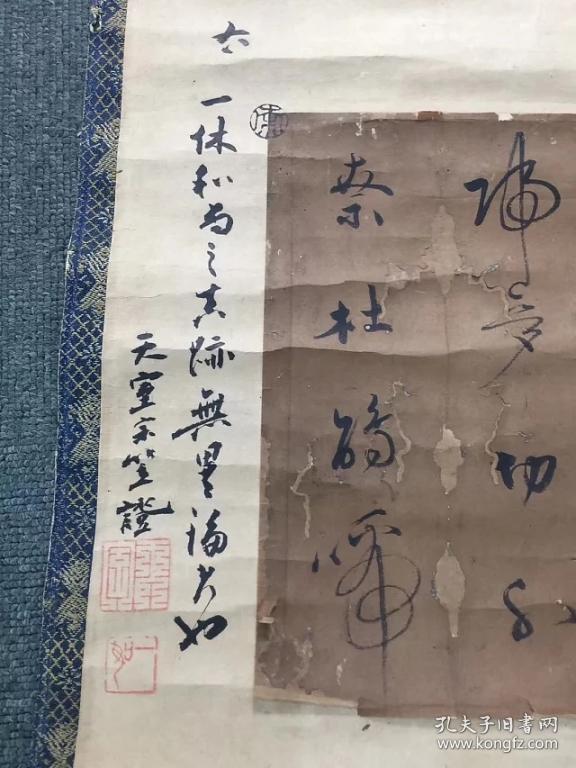 帰夢切
杜鵑啼
右
一休和尚之真跡無異論者也
天室宗竺證
孔夫子旧书网
www.kongfz.com